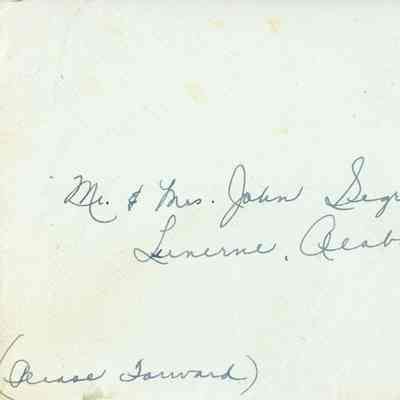 Mr. & Mrs. John Segr
Luverne, Alab
(Please Forward)